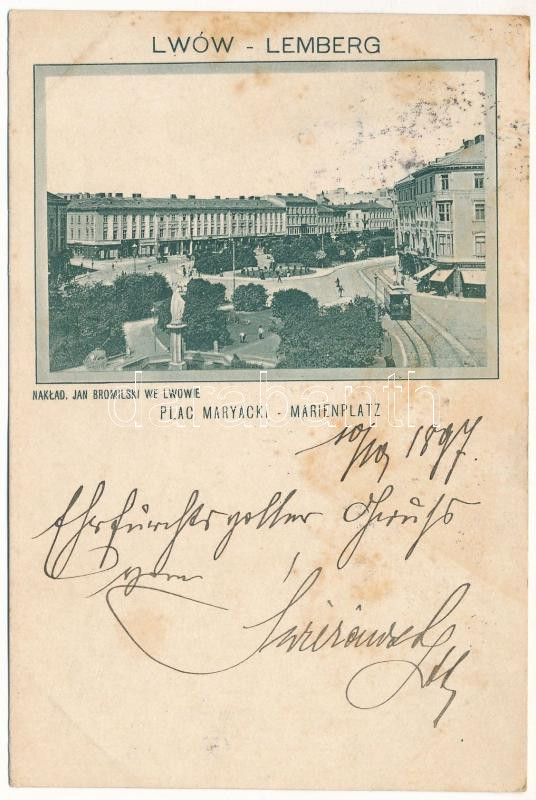 LWÓW - LEMBERG
NAKŁAD. JAN BROMILSKI WE LWOWIE
PLAC MARYACKI - MARIENPLATZ
darabanth
10/10 1897.
Ehrfurchtsvoller Gruß
vom